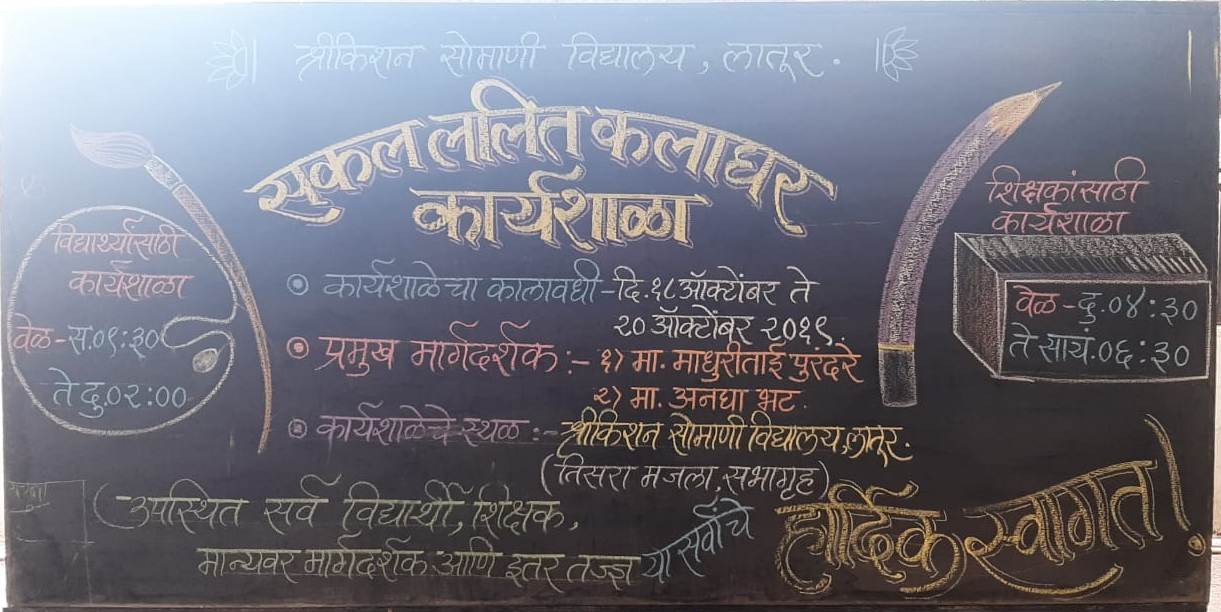 श्रीकिशन सोमाणी विद्यालय, लातूर.
सकल ललित कलाघर
कार्यशाळा
विद्यार्थ्यांसाठी
कार्यशाळा
वेळ - स.०९:३०
ते दु.०२:००
शिक्षकांसाठी
कार्यशाळा
वेळ - दु.०४:३०
ते सायं.०६:३०
कार्यशाळेचा कालावधी - दि.१८ ऑक्टोंबर ते
२० ऑक्टोंबर २०१९.
प्रमुख मार्गदर्शक :- १) मा. माधुरीताई पुरंदरे
२) मा. अनघा भट.
कार्यशाळेचे स्थळ :- श्रीकिशन सोमाणी विद्यालय, लातूर.
(तिसरा मजला, सभागृह)
उपस्थित सर्व विद्यार्थी, शिक्षक,
मान्यवर मार्गदर्शक आणि इतर तज्ज्ञ या सर्वांचे
हार्दिक स्वागत!